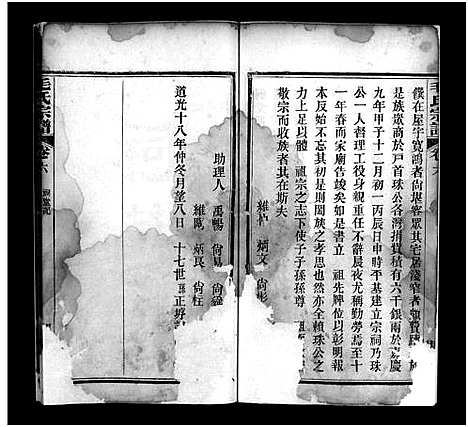 毛氏宗譜
卷六
僕在屋宇寬鴻者尚堪容眾其宅居淺窄者
是族眾商於戶首球公各灣捐貲積有六千銀兩於嘉慶
九年甲子十二月初一丙辰日申時平基建立宗祠乃珠
公一人督理工役身親重任不辭晨夜尤稱勤勞焉至十
一年春而家廟告竣矣如是書立 祖先牌位以彰明報
本反始不則是固闔族之孝思也然亦全賴珠公之
力上足以體 祖宗之志下使子子孫孫尊
敬宗而收族者其在斯夫
維 炳文 尚彬
助理人 禹暢 尚
維 炳良 尚柱
道光十八年仲冬月望八日 十七世 孫 正
毛氏宗譜
卷六 祠堂記